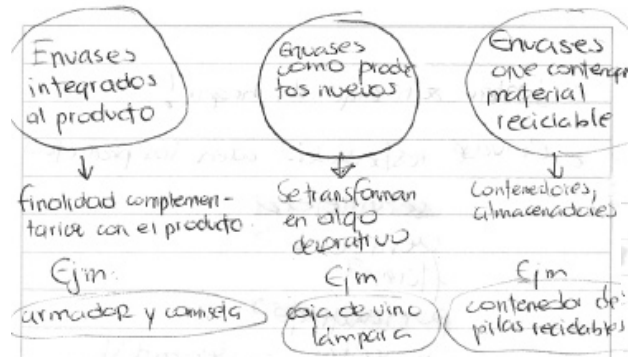 Envases
integrados
al producto
↓
finalidad complemen-
taria con el producto
Ejm:
armador y camiseta
Envases
como produc
tos nuevos
↓
Se transforman
en algo
decorativo
Ejm
caja de vino
lámpara
Envases
que contengan
material
reciclable
↓
Contenedores,
almacenadores
Ejm
contenedor de
pilas reciclables